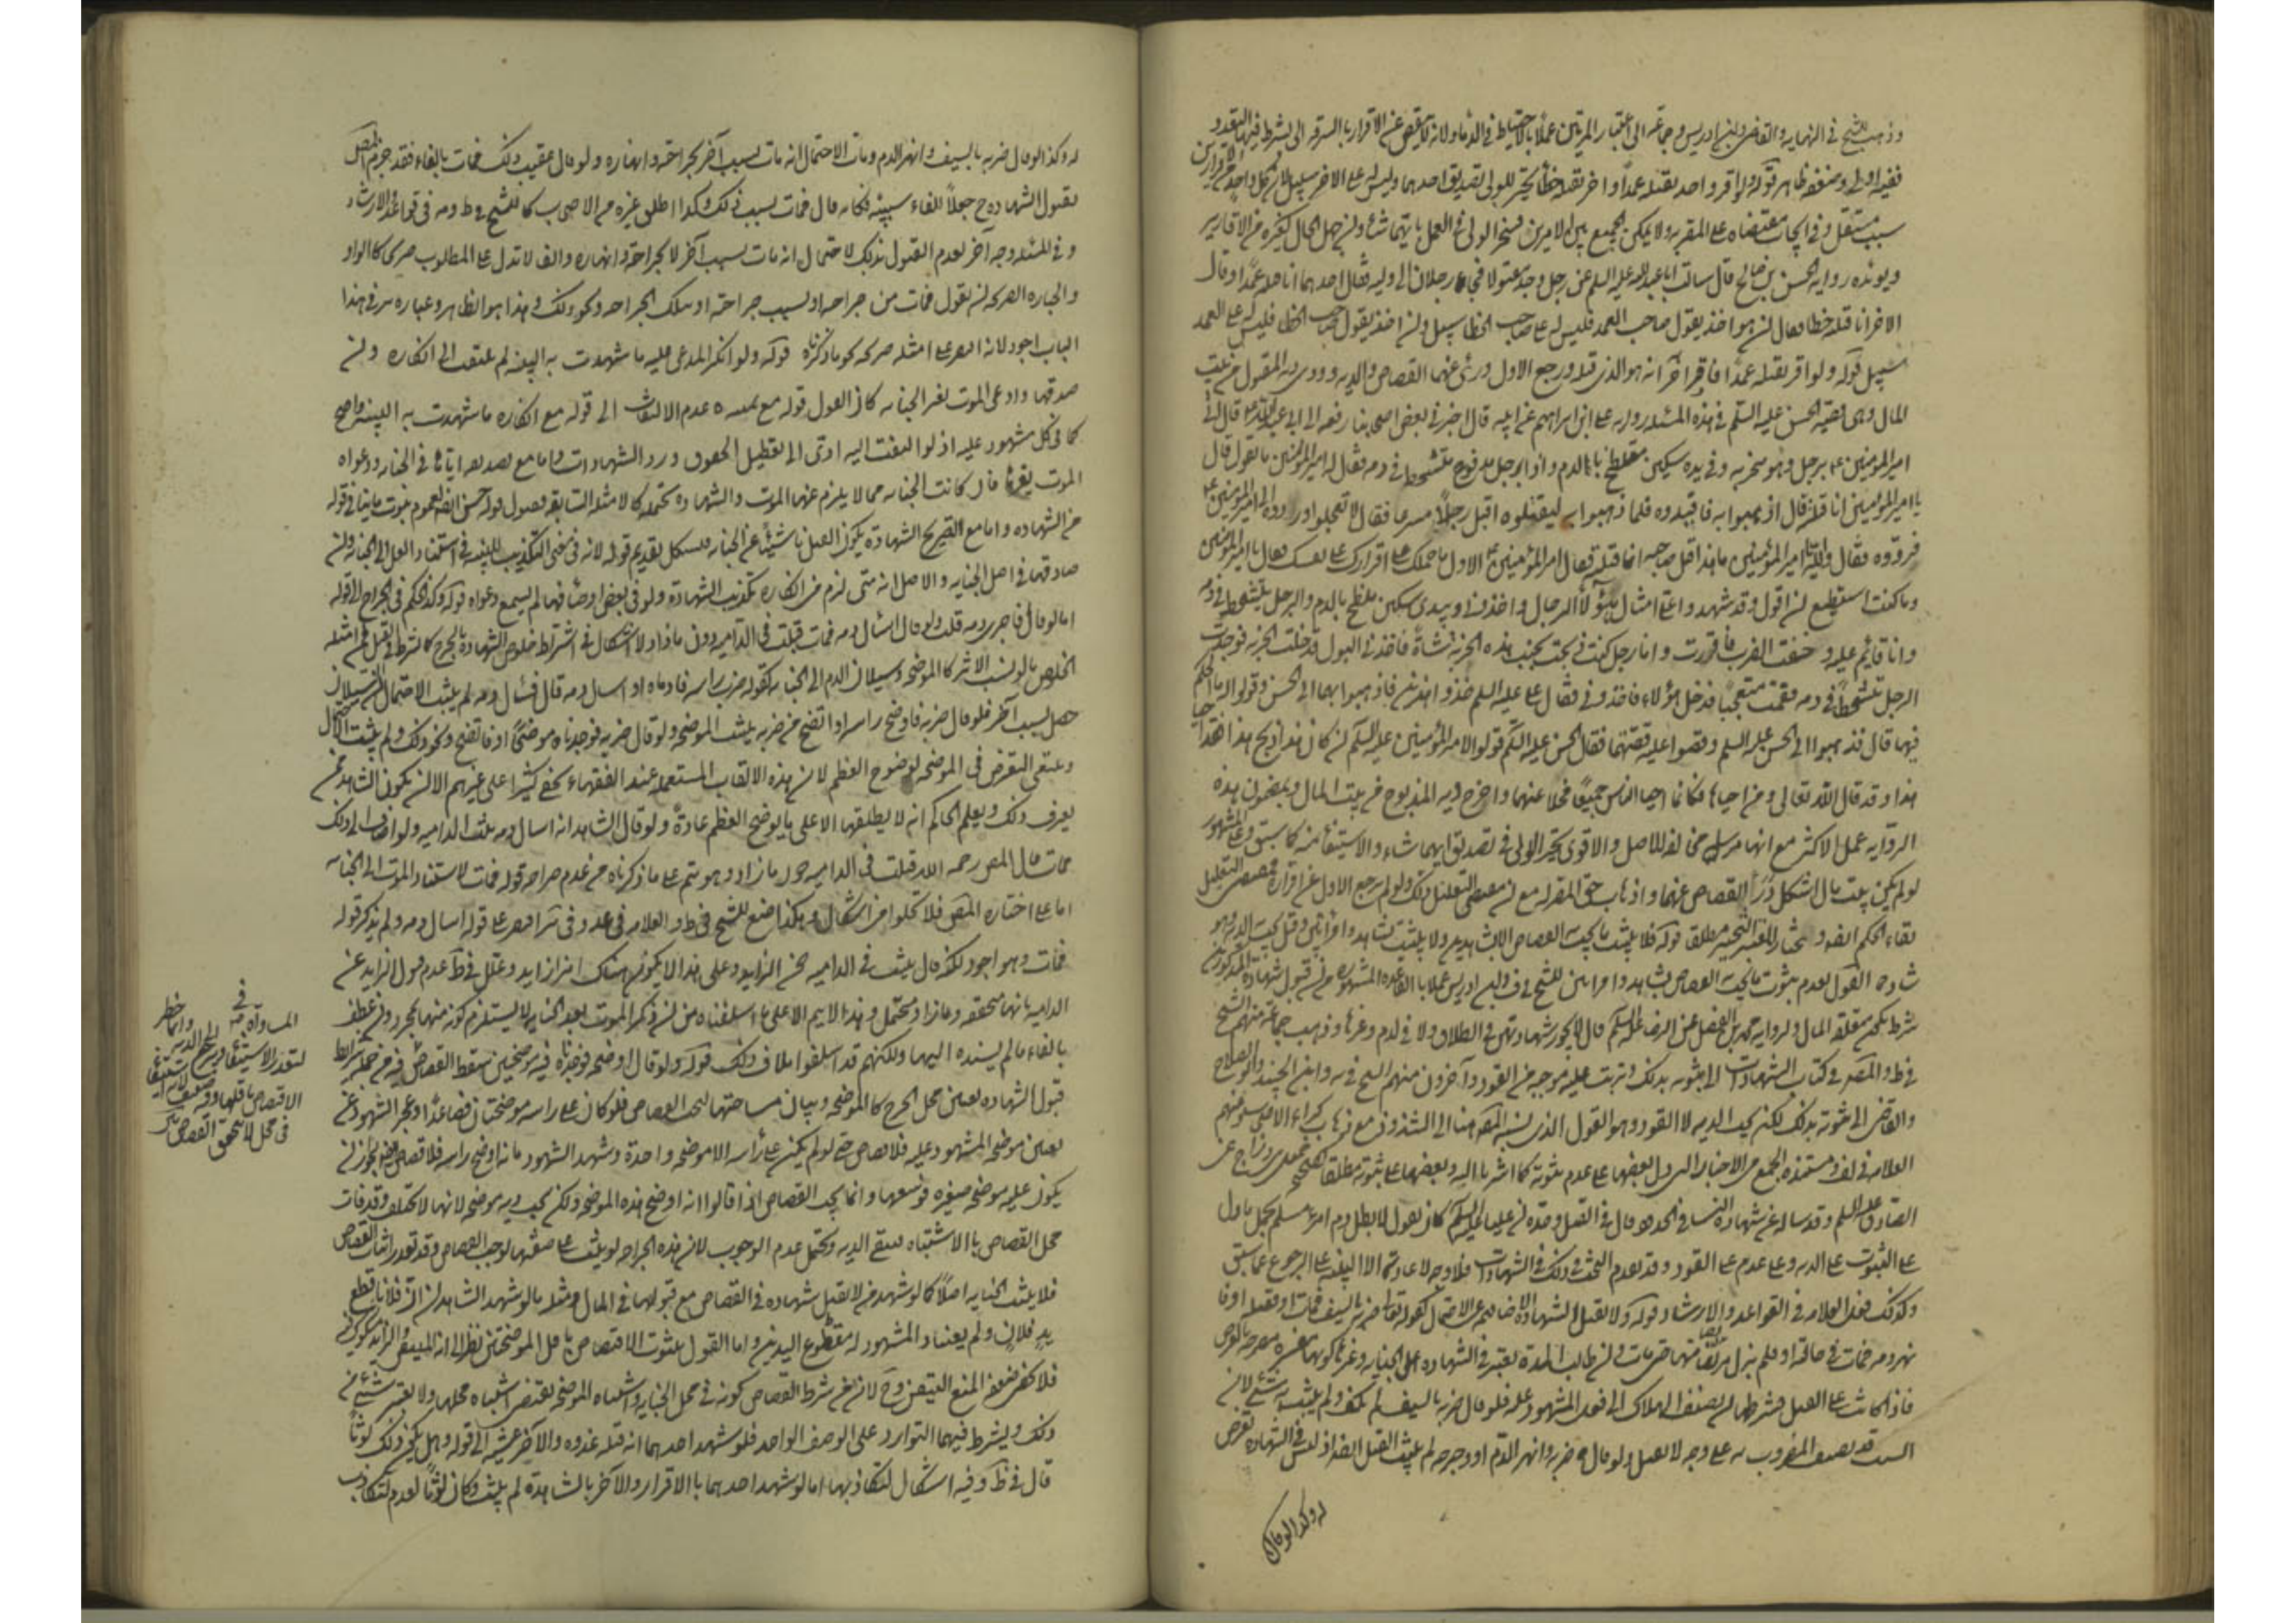 وذهب الشيخ في النهاية والقاضي وابن ادريس وجماعة الى اعتبار المرتين عملا بالاحتياط في الدماء ولانه لا ينقص عن الاقرار بالسرقة التي يشترط فيها التعدد
ففيه اولى وضعفه ظاهر قوله ولو اقر واحد بقتله عمدا واخر بقتله خطأ تخير الولي تصديق احدهما وليس له على الاخر سبيل لان كل واحد من الاقرارين
سبب مستقل في ايجاب مقتضاه على المقر به ولا يمكن الجمع بين الامرين فيتخير الولي في العمل بايهما شاء وان جهل الحال كغيره من الاقارير
ويؤيده رواية الحسن بن صالح قال سالت ابا عبد الله عليه السلم عن رجل وجد مقتولا فجاء رجلان الى وليه فقال احدهما انا قتلته عمدا وقال
الاخر انا قتلته خطا فقال ان هو اخذ بقول صاحب العمد فليس له على صاحب الخطا سبيل وان اخذ بقول صاحب الخطا فليس له على صاحب العمد
سبيل قوله ولو اقر بقتله عمدا فاقر اخر انه هو الذي قتله ورجع الاول درئ عنهما القصاص والدية وودي المقتول من بيت
المال وهي قضية الحسن عليه السلم في هذه المسئلة رواية علي بن ابراهيم عن ابيه قال اخبرني بعض اصحابنا رفعه الى ابي عبد الله ع قال اتي
امير المؤمنين ع برجل وجد في خربة وفي يده سكين ملطخ بالدم واذا رجل مذبوح يتشحط في دمه فقال له امير المؤمنين ما تقول قال
يا امير المؤمنين انا قتلته قال اذهبوا به فاقيدوه فلما ذهبوا به ليقتلوه اقبل رجل مسرعا فقال لا تعجلوا وردوه الى امير المؤمنين ع
فردوه فقال والله يا امير المؤمنين ما هذا قتل صاحبه انا قتلته فقال امير المؤمنين ع للاول ما حملك على اقرارك على نفسك فقال يا امير المؤمنين
وما كنت استطيع ان اقول وقد شهد علي امثال هؤلاء الرجال واخذوني وبيدي سكين ملطخ بالدم والرجل يتشحط في دمه
وانا قائم عليه وخفت الضرب فاقررت وانا رجل كنت ذبحت بجنب هذه الخربة شاة فاخذني البول فدخلت الخربة فوجدت
الرجل يتشحط في دمه فقمت متعجبا فدخل هؤلاء فاخذوني فقال علي عليه السلم خذوا هذين فاذهبوا بهما الى الحسن وقولوا له ما الحكم
فيهما قال فذهبوا الى الحسن عليه السلم وقصوا عليه قصتهما فقال الحسن عليه السلم قولوا لامير المؤمنين عليه السلم ان كان هذا ذبح هذا فقد احيا
هذا وقد قال الله تعالى ومن احياها فكانما احيا الناس جميعا فخلا عنهما واخرج دية المذبوح من بيت المال وبمضمون هذه
الرواية عمل الاكثر مع انها مرسلة مخالفة للاصل والاقوى تخير الولي في تصديق ايهما شاء والاستيفاء منه كما سبق وعلى المشهور
لو لم يكن بيت مال اشكل درء القصاص عنهما واذهاب حق المقر له مع ان مقتضى التعليل ذلك ولو لم يرجع الاول عن اقراره فمقتضى التعليل
بقاء الحكم ايضا والمختار التخيير مطلقا قوله فلا يثبت ما يجب به القصاص الا بشاهدين ولا يثبت بشاهد وامراتين وقيل يجب الدية وهو
شاذ القول بعدم ثبوت ما يجب به القصاص بشاهد وامراتين للشيخ في ف وابن ادريس عملا بالقاعدة المشهورة من ان قبول شهادة المذكورين
شرط بكون متعلقه المال ولرواية محمد بن الفضيل عن الرضا عليه السلم قال لا يجوز شهادتهن في الطلاق ولا في الدم وغيرها وذهب جماعة منهم الشيخ
في ط والمصنف في كتاب الشهادات الى ثبوته بذلك وترتب عليه موجبه من القود وآخرون منهم الشيخ في يه وابن الجنيد وابو الصلاح
والقاضي الى ثبوته بذلك لكن يجب الدية لا القود وهو القول الذي نسبه المصنف هنا الى الشذوذ مع ذهاب كبراء الاصحاب منهم
العلامة في لف ومستنده الجمع بين الاخبار التي دل بعضها على عدم ثبوته كما اشرنا اليه وبعضها على ثبوته مطلقا كصحيحة جميل بن دراج عن
الصادق عليه السلم وقد ساله عن شهادة النساء في الحدود قال في القتل وحده ان عليا عليه السلم كان يقول لا يبطل دم امرء مسلم بحمل ما دل
على الثبوت على الدية وعلى عدمه على القود وقد تقدم البحث في ذلك في الشهادات فلا وجه لاعادته الا البينة على الرجوع عما سبق
وكذلك فعل العلامة في القواعد والارشاد قوله ولا تقبل الشهادة الا صافية عن الاحتمال كقوله ضربه بالسيف فمات او فقتله او فا
نهر دمه فمات في حاله او فلم يزل مريضا منها حتى مات وان طالت المدة يعتبر في الشهادة على الجناية وغيرها كونها مفسرة مصرحة بالغرض
فاذا كانت على القتل فشرطها ان يضيف الهلاك الى فعل المشهود عليه فلو قال ضربه بالسيف لم يكف ولم يثبت به شيء لان
السيف قد يصيب المضروب به على وجه لا يقتل ولو قال ضربه وانهر الدم او وجرحه لم يثبت القتل ايضا اذ ليس في الشهادة تعرض
له وكذا لو قال
له وكذا لو قال ضربه بالسيف وانهر الدم ومات لاحتمال انه مات بسبب آخر لجراحته وانهاره ولو قال عقيب ذلك فمات بالفاء فقد جزم المصنف
بقبول الشهادة ح جعلا للفاء سببية فكانه قال فمات بسبب ذلك وكذا اطلق غيره من الاصحاب كالشيخ في ط ومه في قواعد والارشاد
وفي المسئلة وجه آخر بعدم القبول بذلك لاحتمال انه مات بسبب آخر لا لجراحته وانهاره والفاء لا تدل على المطلوب صريحا كالواو
والعبارة الصريحة ان يقول فمات من جراحه او بسبب جراحته او بتلك الجراحة ونحو ذلك وهذا هو الظاهر وعبارة س في هذا
الباب اجود لانه اقتصر على امثلة صريحة كما ذكرناه قوله ولو انكر المدعى عليه ما شهدت به البينة لم يلتفت الى انكاره وان
صدقها وادعى الموت بغير الجناية كان القول قوله مع يمينه عدم الالتفات الى قوله مع انكاره ما شهدت به البينة واضح
كما في كل مشهود عليه اذ لو التفت اليه ادى الى تعطيل الحقوق ورد الشهادات واما مع تصديقه اياها في الجناية ودعواه
الموت بغيرها فان كانت الجناية مما لا يلزم عنها الموت والشهادة محتملة كالامثلة السابقة فقبول قوله حسن ايضا لعدم ثبوت ما ينافي قوله
من الشهادة واما مع تصريح الشهادة بكون القتل ناشئا عن الجناية فيشكل تقديم قوله لانه في معنى التكذيب للبينة في استناد القتل الى الجناية وان
صادقها في اصل الجناية والاصل انه متى لزم من انكاره تكذيب الشهادة ولو في بعض اوصافها لم يسمع دعواه قوله وكذا الحكم في الجراح لو قال
اما لو قال فاجرى دمه قلت ولو قال اسال دمه فمات قبلت في الدامية دون ما زاد لا اشكال في اشتراط خلوص الشهادة بالجرح كما شرط في القتل فمن امثلة
الخلوص بان ينسب الاثر كالموضحة وسيلان الدم الى الجناية كقوله ضرب راسه فادماه او اسال دمه فلو قال فسال دمه لم يثبت لاحتمال ان سيلان
حصل بسبب آخر فلو قال ضربه فاوضح راسه او اتضح من ضربه يثبت الموضحة ولو قال ضربه فوجدناه موضحا او فاتضح ونحو ذلك ولم يثبت لاحتمال
وينبغي التعرض في الموضحة لوضوح العظم لان هذه الالقاب المستعملة عند الفقهاء يخفى كثيرا على غيرهم الا ان يكون الشاهد ممن
يعرف ذلك ويعلم الحاكم انه لا يطلقها الا على ما يوضح العظم عادة ولو قال الشاهد انه اسال دمه يثبت الدامية ولو اضاف الى ذلك
فمات قال المصنف رحمه الله قبلت في الدامية دون ما زاد وهو يتم على ما ذكرناه من عدم صراحة قوله فمات لاستناد الموت الى الجناية
اما على ما اختاره المصنف فلا يخلو من اشكال وهكذا صنع الشيخ في ط والعلامة في عد وفي س اقتصر على قوله اسال دمه ولم يذكر قوله
فمات وهو اجود لكنه قال يثبت في الدامية دون الزايد وعلى هذا لا يكون هناك امر زايد وعلل في ط عدم قبول الزايد عن
الدامية بانها محققة وما زاد محتمل وهذا لا يتم الا على ما اسلفناه من ان ذكر الموت بعد الجناية لا يستلزم كونه منها بمجرده وان عطف
بالفاء ما لم يسنده اليهما ولكنهم قد اسلفوا خلاف ذلك قوله ولو قال اوضحه فوجد فيه موضحتين سقط القصاص فيه من جملة شرايط
قبول الشهادة تعيين محل الجرح كالموضحة وبيان مساحتها ليجب القصاص فلو كان على راسه موضحتان فصاعدا وعجز الشهود عن
تعيين موضحة المشهود عليه فلا قصاص حتى لو لم يكن على راسه الا موضحة واحدة وشهد الشهود بانه اوضح راسه فلا قصاص لجواز ان
يكون عليه موضحة صغيرة فوسعها وانما يجب القصاص اذا قالوا انه اوضح هذه الموضحة ولكن يجب دية موضحة لانها لا تختلف وقد فات
محل القصاص بالاشتباه فيبقى الدية ويحتمل عدم الوجوب لان هذه الجراحة لو يثبت على صفتها لوجب القصاص وقد تعذر اثبات القصاص
فلا يثبت الجناية اصلا كما لو شهد من لا تقبل شهادته في القصاص مع قبولها في المال ومثله ما لو شهد الشاهدان ان فلانا قطع
يد فلان ولم يعينا والمشهود له مقطوع اليدين واما القول بثبوت الاقتصاص باقل الموضحتين نظرا الى انه المتيقن والزايد مشكوك فيه
فلا يخفى ضعفه لمنع التيقن وح لان من شرط القصاص كونه في محل الجناية واشتباه الموضحة يقتضي اشتباه محلها ولا يعتبر شيء من
ذلك ويشترط فيهما التوارد على الوصف الواحد فلو شهد احدهما انه قتله غدوة والآخر عشية الى قوله وهل يكون ذلك لوثا
قال في ط وفيه اشكال لتكاذبهما اما لو شهد احدهما بالاقرار والآخر بالمشاهدة لم يثبت وكان لوثا لعدم التكاذب
في
المساواة
لتعذر الاستيفاء ورجع الى الدية
الاقتصاص باقلها وفيه ضعف لانه استيفاء
في محل لا يتحقق القصاص